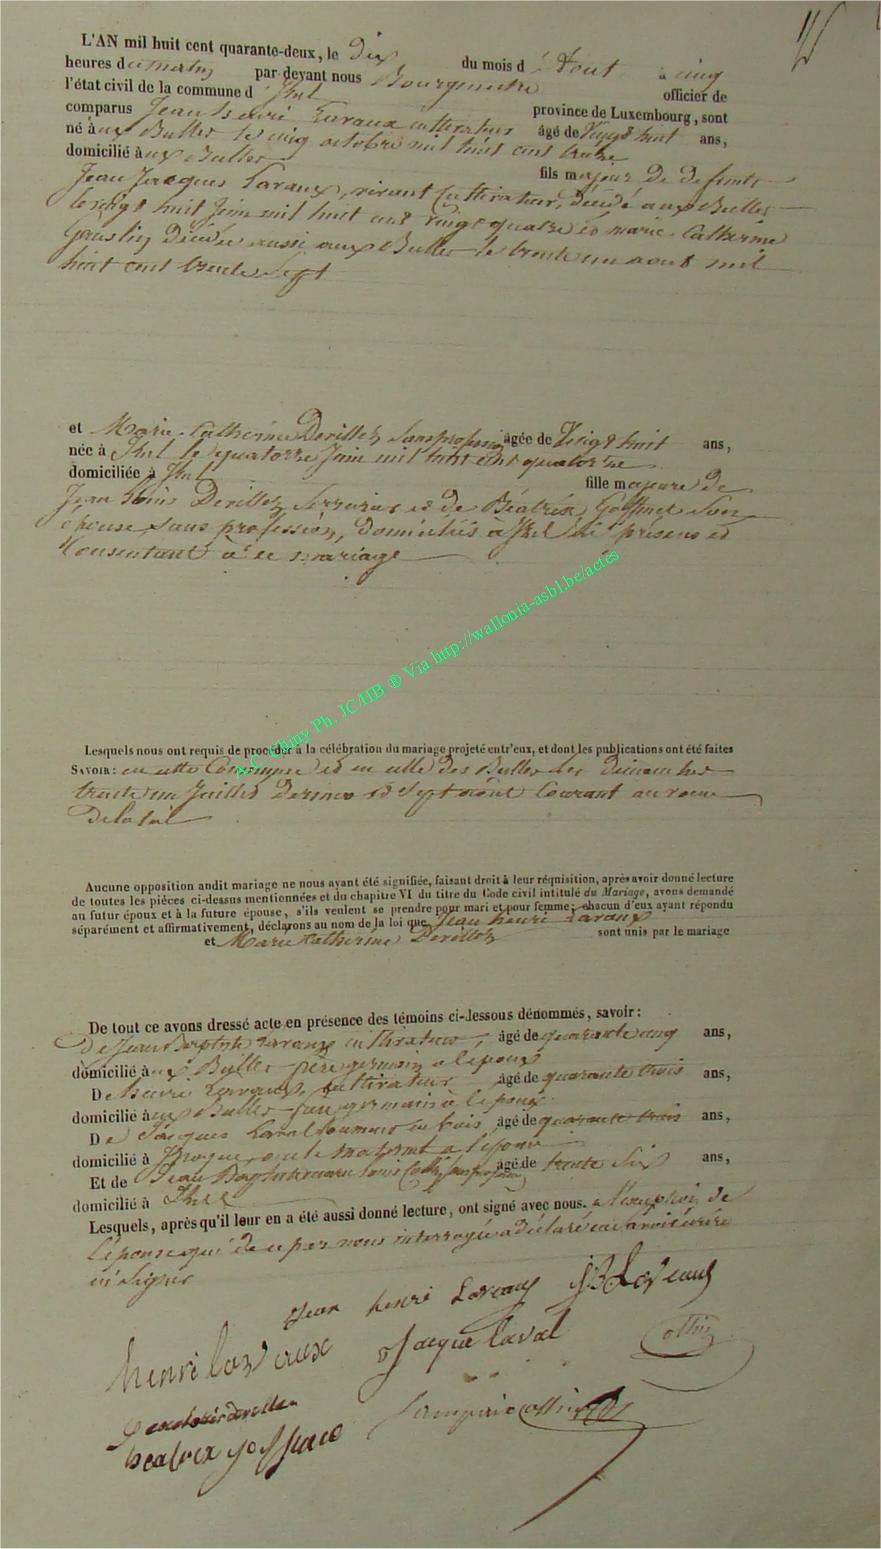 L'AN mil huit cent quarante-deux, le Dix du mois d'Aout à cinq
heures du matin par devant nous Bourgmestre officier de
l'état civil de la commune d'Izel province de Luxembourg, sont
comparus Jean henri Lavaux cultivateur âgé de Vingt huit ans,
né aux Bulles le cinq octobre mil huit cent treize
domicilié aux Bulles fils majeur de defunts
Jean Jacques Lavaux, vivant Cultivateur, décédé aux Bulles
le vingt huit Juin mil huit cent vingt quatre et marie Catherine
Goustin décédée aussi aux Bulles le trente un aout mil
huit cent trente Sept
et Marie Catherine Devillez Sans profession agée de Vingt huit ans,
née à Izel le quatorze Juin mil huit cent quatorze
domiciliée à Izel fille majeure de
Jean Louis Devillez Serrurier et de Béatrix Goffinet Son
épouse Sans profession, domiciliés à Izel ici présens et
Consentant à ce mariage
A.C. Chiny Ph. JC/HB ® Via http://wallonia-asbl.be/actes
Lesquels nous ont requis de procéder à la célébration du mariage projeté entr'eux, et dont les publications ont été faites
SAVOIR: en cette Commune et en celle des Bulles les dimanches
trente un Juillet dernier et Sept août Courant au voeu
De la loi
Aucune opposition audit mariage ne nous ayant été signifiée, faisant droit à leur réquisition, après avoir donné lecture
de toutes les pièces ci-dessus mentionnées et du chapitre VI du titre du Code civil intitulé du Mariage, avons demandé
au futur époux et à la future épouse, s'ils veulent se prendre pour mari et pour femme; chacun d'eux ayant répondu
séparément et affirmativement, déclarons au nom de la loi que Jean henri Lavaux
et Marie Catherine Devillez sont unis par le mariage
De tout ce avons dressé acte en présence des témoins ci-dessous dénommés, savoir:
De Jean Baptiste Lavaux cultivateur, âgé de quarante cinq ans,
domicilié aux Bulles frère germain à l'époux
De henri Lavaux, cultivateur âgé de quarante trois ans,
domicilié aux Bulles frère germain à l'époux
De Jacques Laval âgé de quarante trois ans,
domicilié à oncle maternel à l'époux
Et de Jean Baptiste Louis Collin sans profession âgé de trente Six ans,
domicilié à Izel
Lesquels, après qu'il leur en a été aussi donné lecture, ont signé avec nous. à l'exception de
l'épouse qui de ce par nous interrogée a déclaré ne Savoir écrire
ni Signer
Jean henri Lavaux JB Lavaux
henri lavaux Jacque Laval Collin
Jean louis devillez
beatrix goffinet